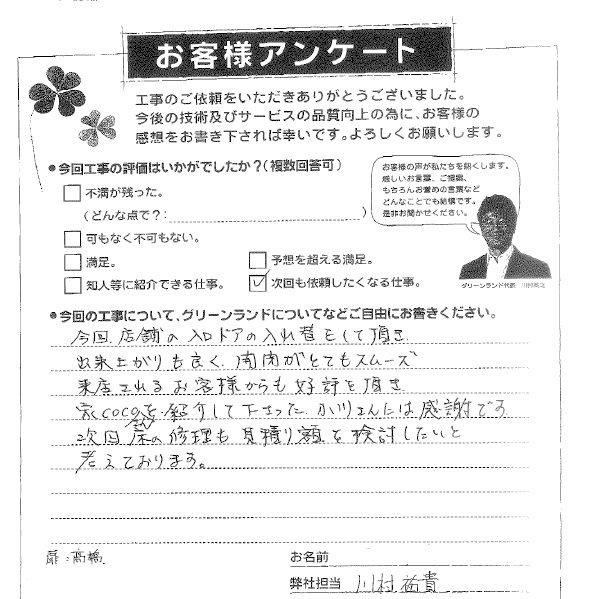 お客様アンケート
工事のご依頼をいただきありがとうございました。
今後の技術及びサービスの品質向上の為に、お客様の
感想をお書き下されば幸いです。よろしくお願いします。
●今回工事の評価はいかがでしたか？(複数回答可)
不満が残った。
(どんな点で？: )
可もなく不可もない。
満足。
予想を超える満足。
知人等に紹介できる仕事。
次回も依頼したくなる仕事。
お客様の声が私たちを鋭くします。
厳しいお言葉、ご意見、
もちろんお誉めの言葉など
どんなことでも結構です。
是非お聞かせください。
グリーンランド代表
●今回の工事について、グリーンランドについてなどご自由にお書きください。
今回、店舗の入口ドアの入れ替をして頂き
出来上がりも良く、開閉がとてもスムーズ
来店されるお客様からも好評を頂き
家COCOを紹介して下さった 小川さんには感謝です
次回 床の修理も見積り額を検討したいと
考えております。
扉：高橋
お名前
弊社担当 川村祐貴